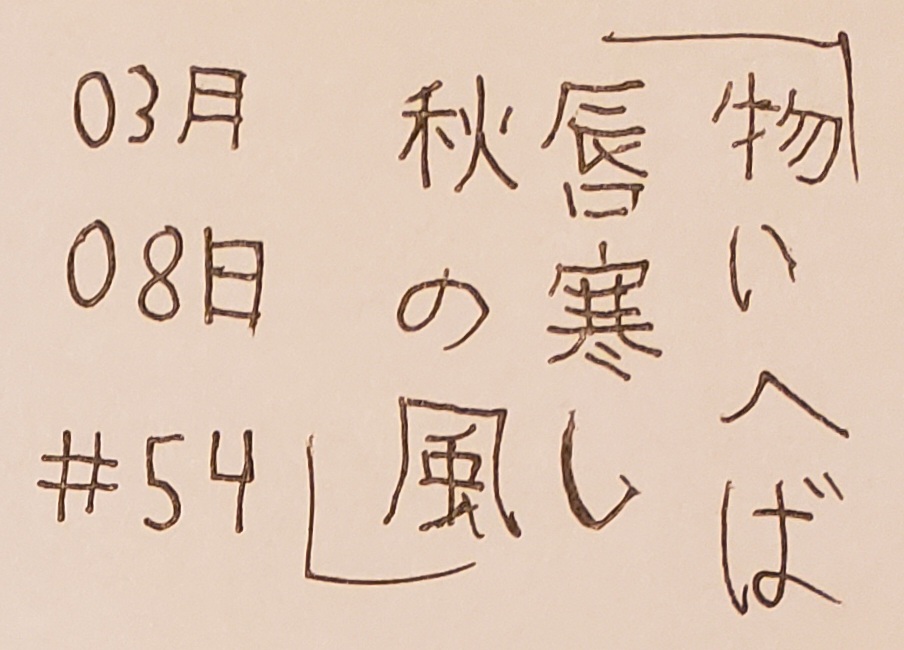 「物いへば
唇寒し
秋の風」
03月
08日
#54